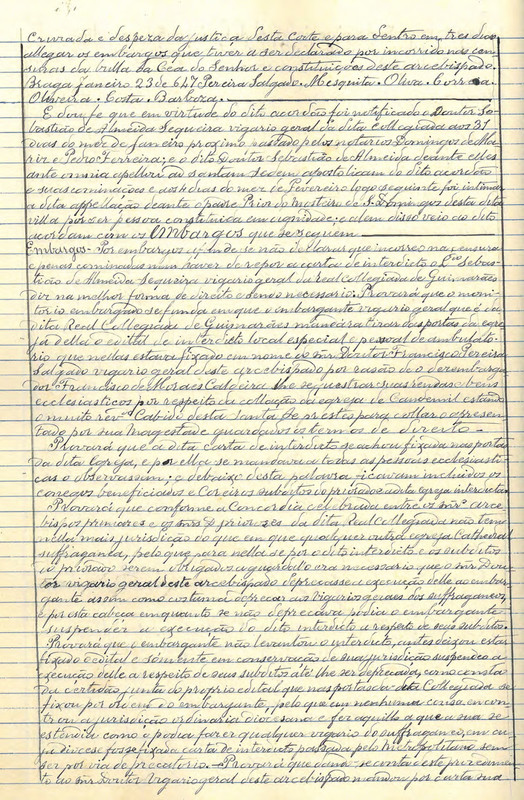 Cruzada e despeza da justiça desta Corte e para dentro em tres dias
allegar os embargos que tiver a ser declarado por incorrido nas cen-
suras da bulla da Cea do Senhor e constituições deste arcebispado.
Braga janeiro 23 de 647 Pereira Salgado. Mesquita. Oliva. Correa.
Oliveira. Costa. Barboza.
E dou fé que em virtude do dito acordão foi notificado o Doutor Se-
bastião de Almeida Sequeira vigario geral da dita Collegiada aos 31
dias do mez de Janeiro proximo passado pelos notarios Domingos de Ma-
riz e Pedro Ferreira; e o dito Doutor Sebastião de Almeida deante elles
ante omnia appellou ao santam sedem apostolicam do dito acordão
e suas cominações e aos dias do mez de Fevereiro logo seguinte foi intimar
a dita appellação deante o padre Prior do mosteiro de S. Domingos desta dita
villa por ser pessoa constituida em dignidade; e alem disso veio ao dito
acordam com os Embargos que se seguem
Embargos - Por embargos afim de se não declarar que incorreu na censura
e penas cominadas nem haver de repor a carta de interdicto o Dor Sebas-
tião de Almeida Sequeira vigario geral da real Collegiada de Guimarães
diz na melhor forma de direito e sendo necessario. Provará que o moni-
torio embargado se funda em que o embargante vigario geral que é da
dita Real Collegiada de Guimarães mandára tirar das portas da egre-
ja della o edital de interdicto local especial e pessoal de ambulato-
rio que nellas estava fixado em nome do mr Doutor Francisco Pereira
Salgado vigario geral deste arcebispado por rasão de o dezembarga-
dor Francisco de Moraes Caldeira lhe sequestrar suas rendas e bens
ecclesiasticos por respeito da collação da egreja de Candemil estando
o muito revdo Cabido desta Santa Sé prestes para collar o apresen-
tado por sua Magestade guardados os termos de direito -
Provará que a dita carta de interdicto se achou fixada nas portas
da dita Igreja, e por ella se mandava a todas as pessoas ecclesiasti-
cas o observassem; e debaixo desta palavra ficavam incluidos os
conegos beneficiados e Coreiros subditos do priorado e a dita Igreja interdicta.
Provará que conforme a Concordia celebrada entre os mrs arce-
bispos primazes e os mrs D. priores da dita Real Collegiada não tem
nella mais jurisdição do que em que qualquer outra egreja Cathedral
suffraganea, pelo que para nella se por o dito interdicto e os subditos
do priorado serem obrigados a guardal-o era necessario que o mr Dou-
tor vigario geral deste arcebispado deprecasse a execução delle ao embar-
gante assim como costuma deprecar aos vigarios geraes dos suffraganeos,
e por esta cabeça emquanto se não deprecava podia o embargante
suspender a execução do dito interdicto a respeito de seus subditos.
Provará que o embargante não levantou o interdicto, antes deixou estar
fixado o edital e somente em conservação de sua jurisdição suspendeo a
execução delle a respeito de seus subditos até lhe ser deprecada, como consta
da certidão junta do proprio edital que nas portas da dita Collegiada se
fixou por ordem do embargante, pelo que em nenhuma coisa encon-
trou a jurisdição ordinaria diocesana e fez aquillo a que a sua se
estendia como o podia fazer qualquer vigario do suffraganeo, em cu-
ja diocese fosse fixada carta de interdicto passada pelo Metropolitano, sem
ser por via de precatorio. - Provará que dando-se conta deste procedimen-
to ao mr Doutor Vigario geral deste arcebispado mandou por carta sua